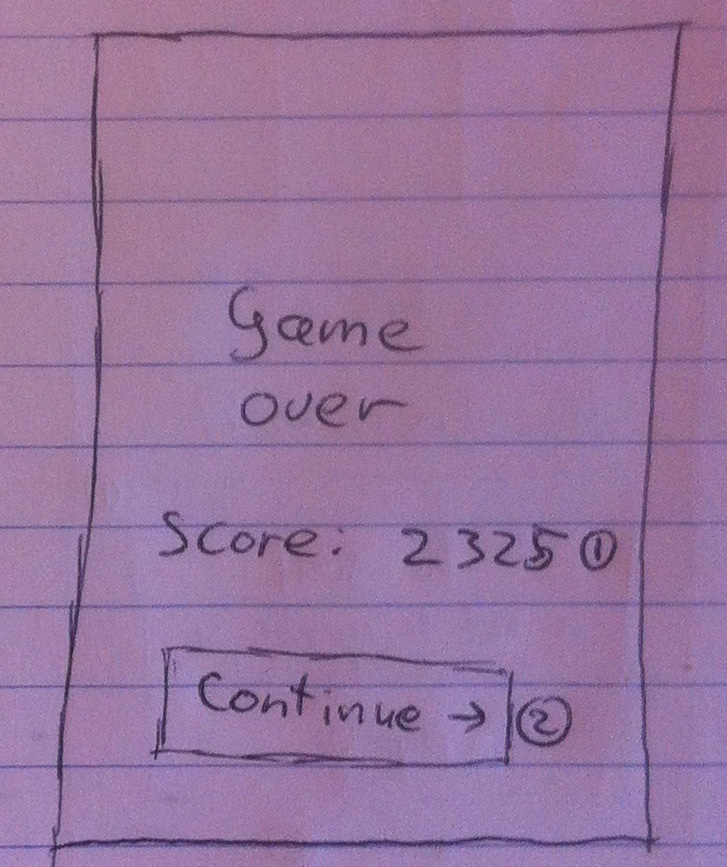 Game
over
Score: 2325 ①
Continue → ②